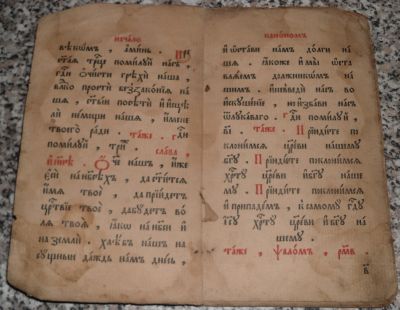 начало
вѣкѡмъ , аминь . Прⷭ҇
стаѧ трⷪ҇це помилꙋй насъ ,
гдⷭ҇и ѡ҆чисти грѣхи наша
влⷣко прости беззакѡнїѧ на
ша , ст҃ый посѣти и҆ и҆сцѣ
ли немощи наша , и҆мене
твоегѡ ради . таже . гдⷭ҇и
помилꙋй , три . слава ,
и҆ нн҃ѣ . Ѻ҆че нашъ , и҆же
є҆си на нб҃сѣхъ , да ст҃итсѧ
и҆мѧ твоѐ , да прїидетъ
црⷭ҇твїе твоѐ , да бꙋдетъ во
лѧ твоѧ , ꙗ҆кѡ на нб҃си и҆
на земли . хлѣбъ нашъ на
сꙋщныи даждь намъ днесь ,
канѡномъ
и҆ ѡ҆стави намъ долги на
ша , ꙗ҆коже и҆ мы ѡ҆ста
влѧемъ должникѡмъ на
шимъ . и҆ не введи насъ во
и҆скꙋшенїе , но и҆збави насъ
ѿ лꙋкаваго . гдⷭ҇и помилꙋй
в҃і . таже . Прїидите по
клонимсѧ цр҃еви нашемꙋ
бг҃ꙋ . Прїидите поклонимсѧ
хрⷭ҇тꙋ цр҃еви и҆ бг҃ꙋ наше
мꙋ . Прїидите поклонимсѧ
и҆ припадемъ , к самомꙋ гдⷭ҇ꙋ
і҆с҃ꙋ хрⷭ҇тꙋ цр҃еви и҆ бг҃ꙋ на
шемꙋ .
таже , ѱаломъ , рм҃в .
в҃